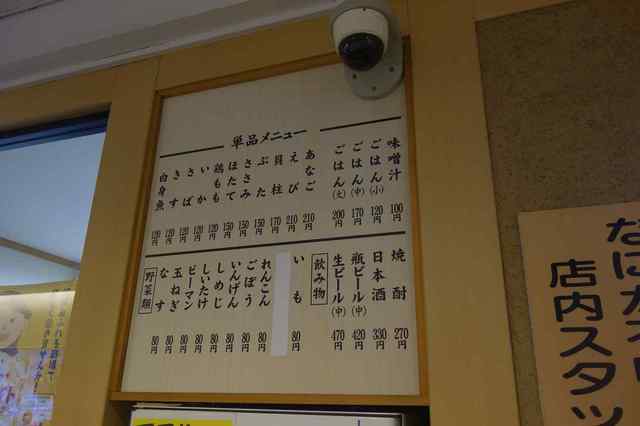 単品メニュー
味噌汁 100円
ごはん(小) 120円
ごはん(中) 170円
ごはん(大) 200円
あなご 210円
えび 210円
貝柱 170円
ぶた 150円
ささみ 150円
ほたて 150円
鶏もも 120円
いか 120円
さば 120円
きす 120円
白身魚 120円
焼酎 270円
日本酒 330円
瓶ビール(中) 420円
生ビール(中) 470円
飲み物
いも 80円
れんこん 80円
ごぼう 80円
いんげん 80円
しめじ 80円
しいたけ 80円
ピーマン 80円
玉ねぎ 80円
なす 80円
野菜類
店内スタッ